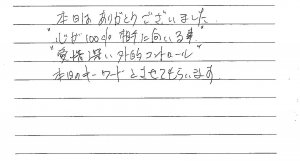 本日は ありがとうございました
"心が100% 相手に向いる事"
"愛情 思い 外的コントロール"
本日のキーワード とさせてもらいます